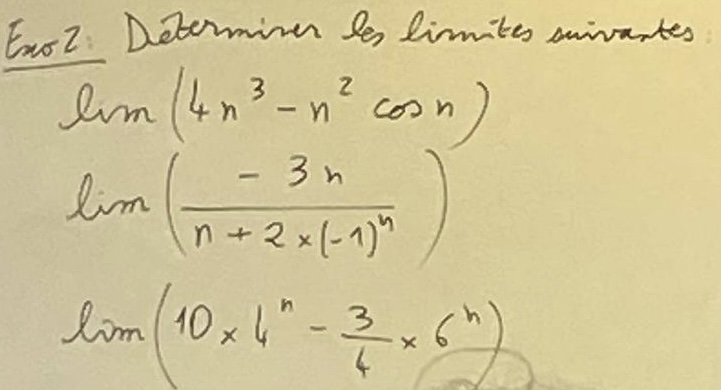 Exo 2: Déterminer les limites suivantes :
lim (4n³ - n² cos n)
lim (- 3n / n + 2 × (-1)ⁿ)
lim (10 × 4ⁿ - 3/4 × 6ⁿ)